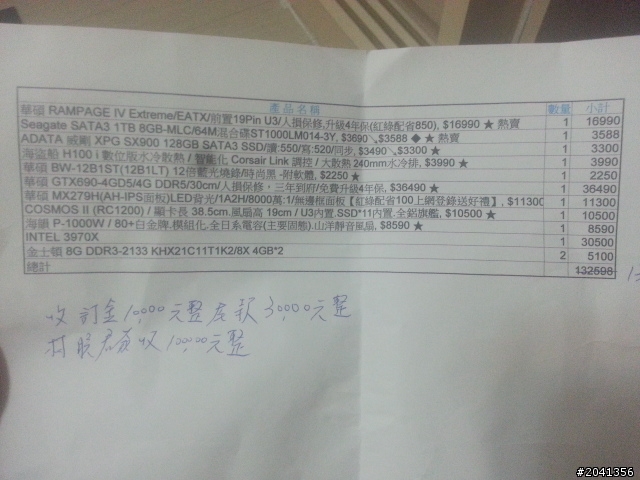 產品名稱 數量 小計
華碩 RAMPAGE IV Extreme/EATX/前置19Pin U3/人損保修,升級4年保(紅綠配省850), $16990 ★ 熱賣 1 16990
Seagate SATA3 1TB 8GB-MLC/64M混合碟ST1000LM014-3Y, $3690↘$3588 ◆ 熱賣 1 3588
ADATA 威剛 XPG SX900 128GB SATA3 SSD/讀:550/寫:520/同步, $3490↘$3300 ★ 1 3300
海盜船 H100 i 數位版水冷散熱 / 智能化 Corsair Link 調控 / 大散熱 240mm水冷排, $3990 ★ 1 3990
華碩 BW-12B1ST(12B1LT) 12倍藍光燒錄/時尚黑 -附軟體, $2250 ★ 1 2250
華碩 GTX690-4GD5/4G DDR5/30cm/人損保修, 三年到府/免費升級4年保, $36490 ★ 1 36490
華碩 MX279H(AH-IPS面板)LED背光/1A2H/8000萬:1/無邊框面板【紅綠配省100上網登錄送好禮】, $11300 1 11300
COSMOS II (RC1200) / 顯卡長 38.5cm.風扇高 19cm / U3內置.SSD*11內置.全鋁旗艦, $10500 ★ 1 10500
海韻 P-1000W / 80+白金牌.模組化.全日系電容(主要固態).山洋靜音風扇, $8590 ★ 1 8590
INTEL 3970X 1 30500
金士頓 8G DDR3-2133 KHX21C11T1K2/8X 4GB*2 2 5100
總計 132598
收訂金10,000元整 尾款30,000元整
收10,000元整
#2041356